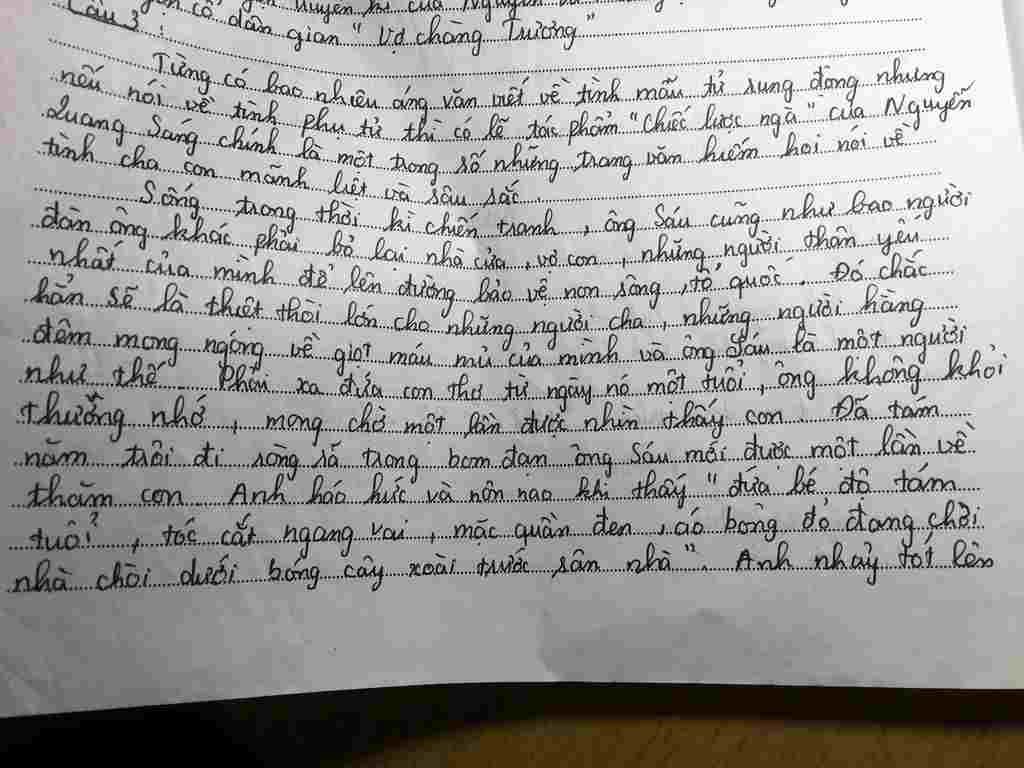 truyền kì của Nguyễn
cổ dân gian " Vợ chàng Trương "
Câu 3 :
Từng có bao nhiêu áng văn viết về tình mẫu tử rung động nhưng
nếu nói về tình phụ tử thì có lẽ tác phẩm " Chiếc lược ngà " của Nguyễn
Quang Sáng chính là một trong số những trang văn hiếm hoi nói về
tình cha con mãnh liệt và sâu sắc.
Sống trong thời kì chiến tranh, ông Sáu cũng như bao người
đàn ông khác phải bỏ lại nhà cửa, vợ con, những người thân yêu
nhất của mình để lên đường bảo vệ non sông, tổ quốc. Đó chắc
hẳn sẽ là thiệt thòi lớn cho những người cha, những người hàng
đêm mong ngóng về giọt máu mủ của mình và ông Sáu là một người
như thế. Phải xa đứa con thơ từ ngày nó một tuổi, ông không khỏi
thương nhớ, mong chờ một lần được nhìn thấy con. Đã tám
năm trôi đi ròng rã trong bom đạn ông Sáu mới được một lần về
thăm con. Anh háo hức và nôn nao khi thấy " đứa bé độ tám
tuổi, tóc cắt ngang vai, mặc quần đen, áo bông đỏ đang chơi
nhà chòi dưới bóng cây xoài trước sân nhà ". Anh nhảy tót lên